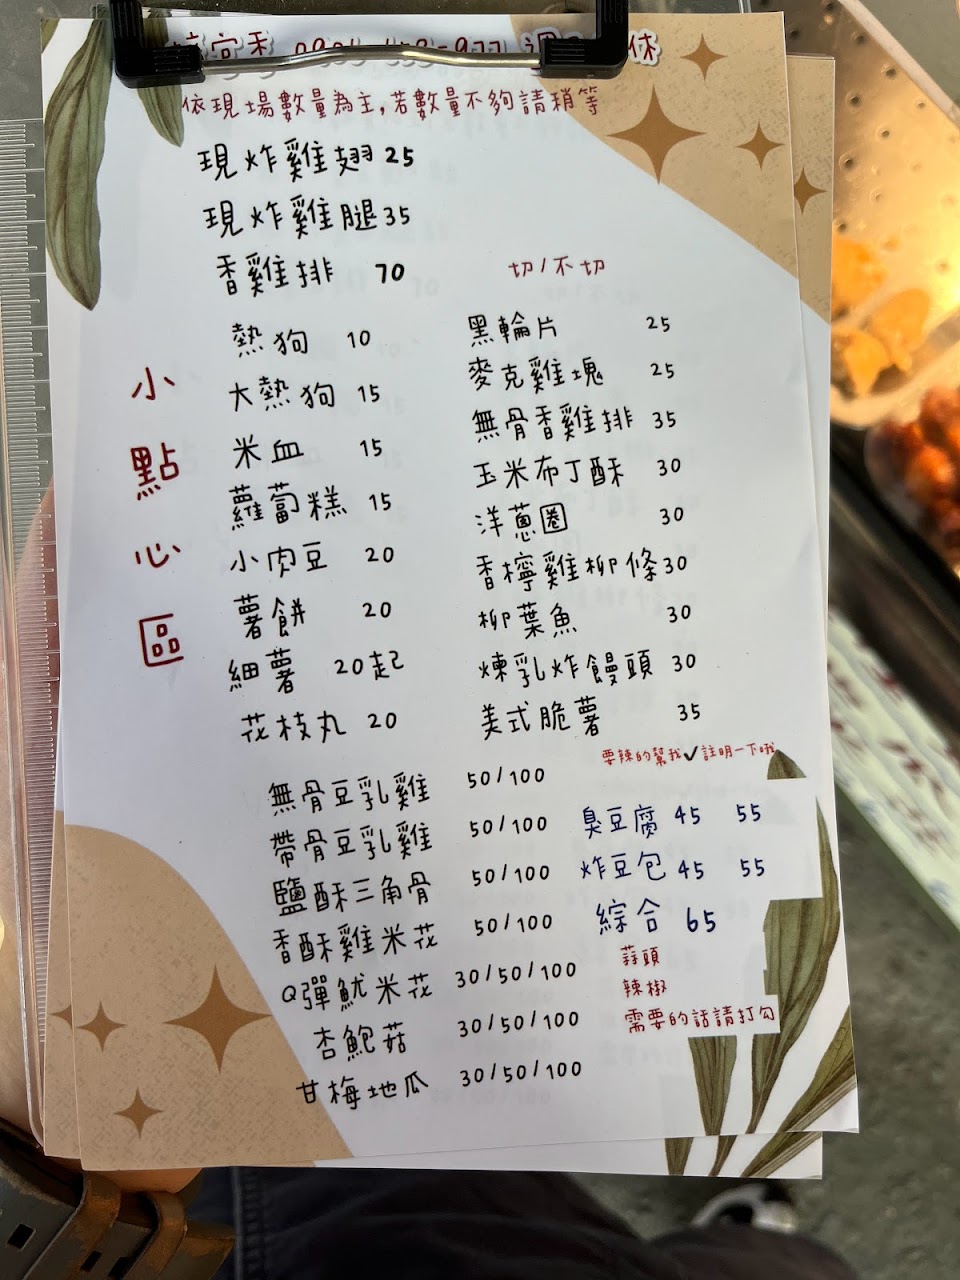 休
依現場數量為主,若數量不夠請稍等
現炸雞翅 25
現炸雞腿 35
香雞排 70 切/不切
小點心區
熱狗 10
大熱狗 15
米血 15
蘿蔔糕 15
小肉豆 20
薯餅 20
細薯 20起
花枝丸 20
黑輪片 25
麥克雞塊 25
無骨香雞排 35
玉米布丁酥 30
洋蔥圈 30
香檸雞柳條 30
柳葉魚 30
煉乳炸饅頭 30
美式脆薯 35
要辣的幫我✓註明一下哦
無骨豆乳雞 50/100
帶骨豆乳雞 50/100
鹽酥三角骨 50/100
香酥雞米花 50/100
Q彈魷米花 30/50/100
杏鮑菇 30/50/100
甘梅地瓜 30/50/100
臭豆腐 45 55
炸豆包 45 55
綜合 65
蒜頭
辣椒
需要的話請打勾